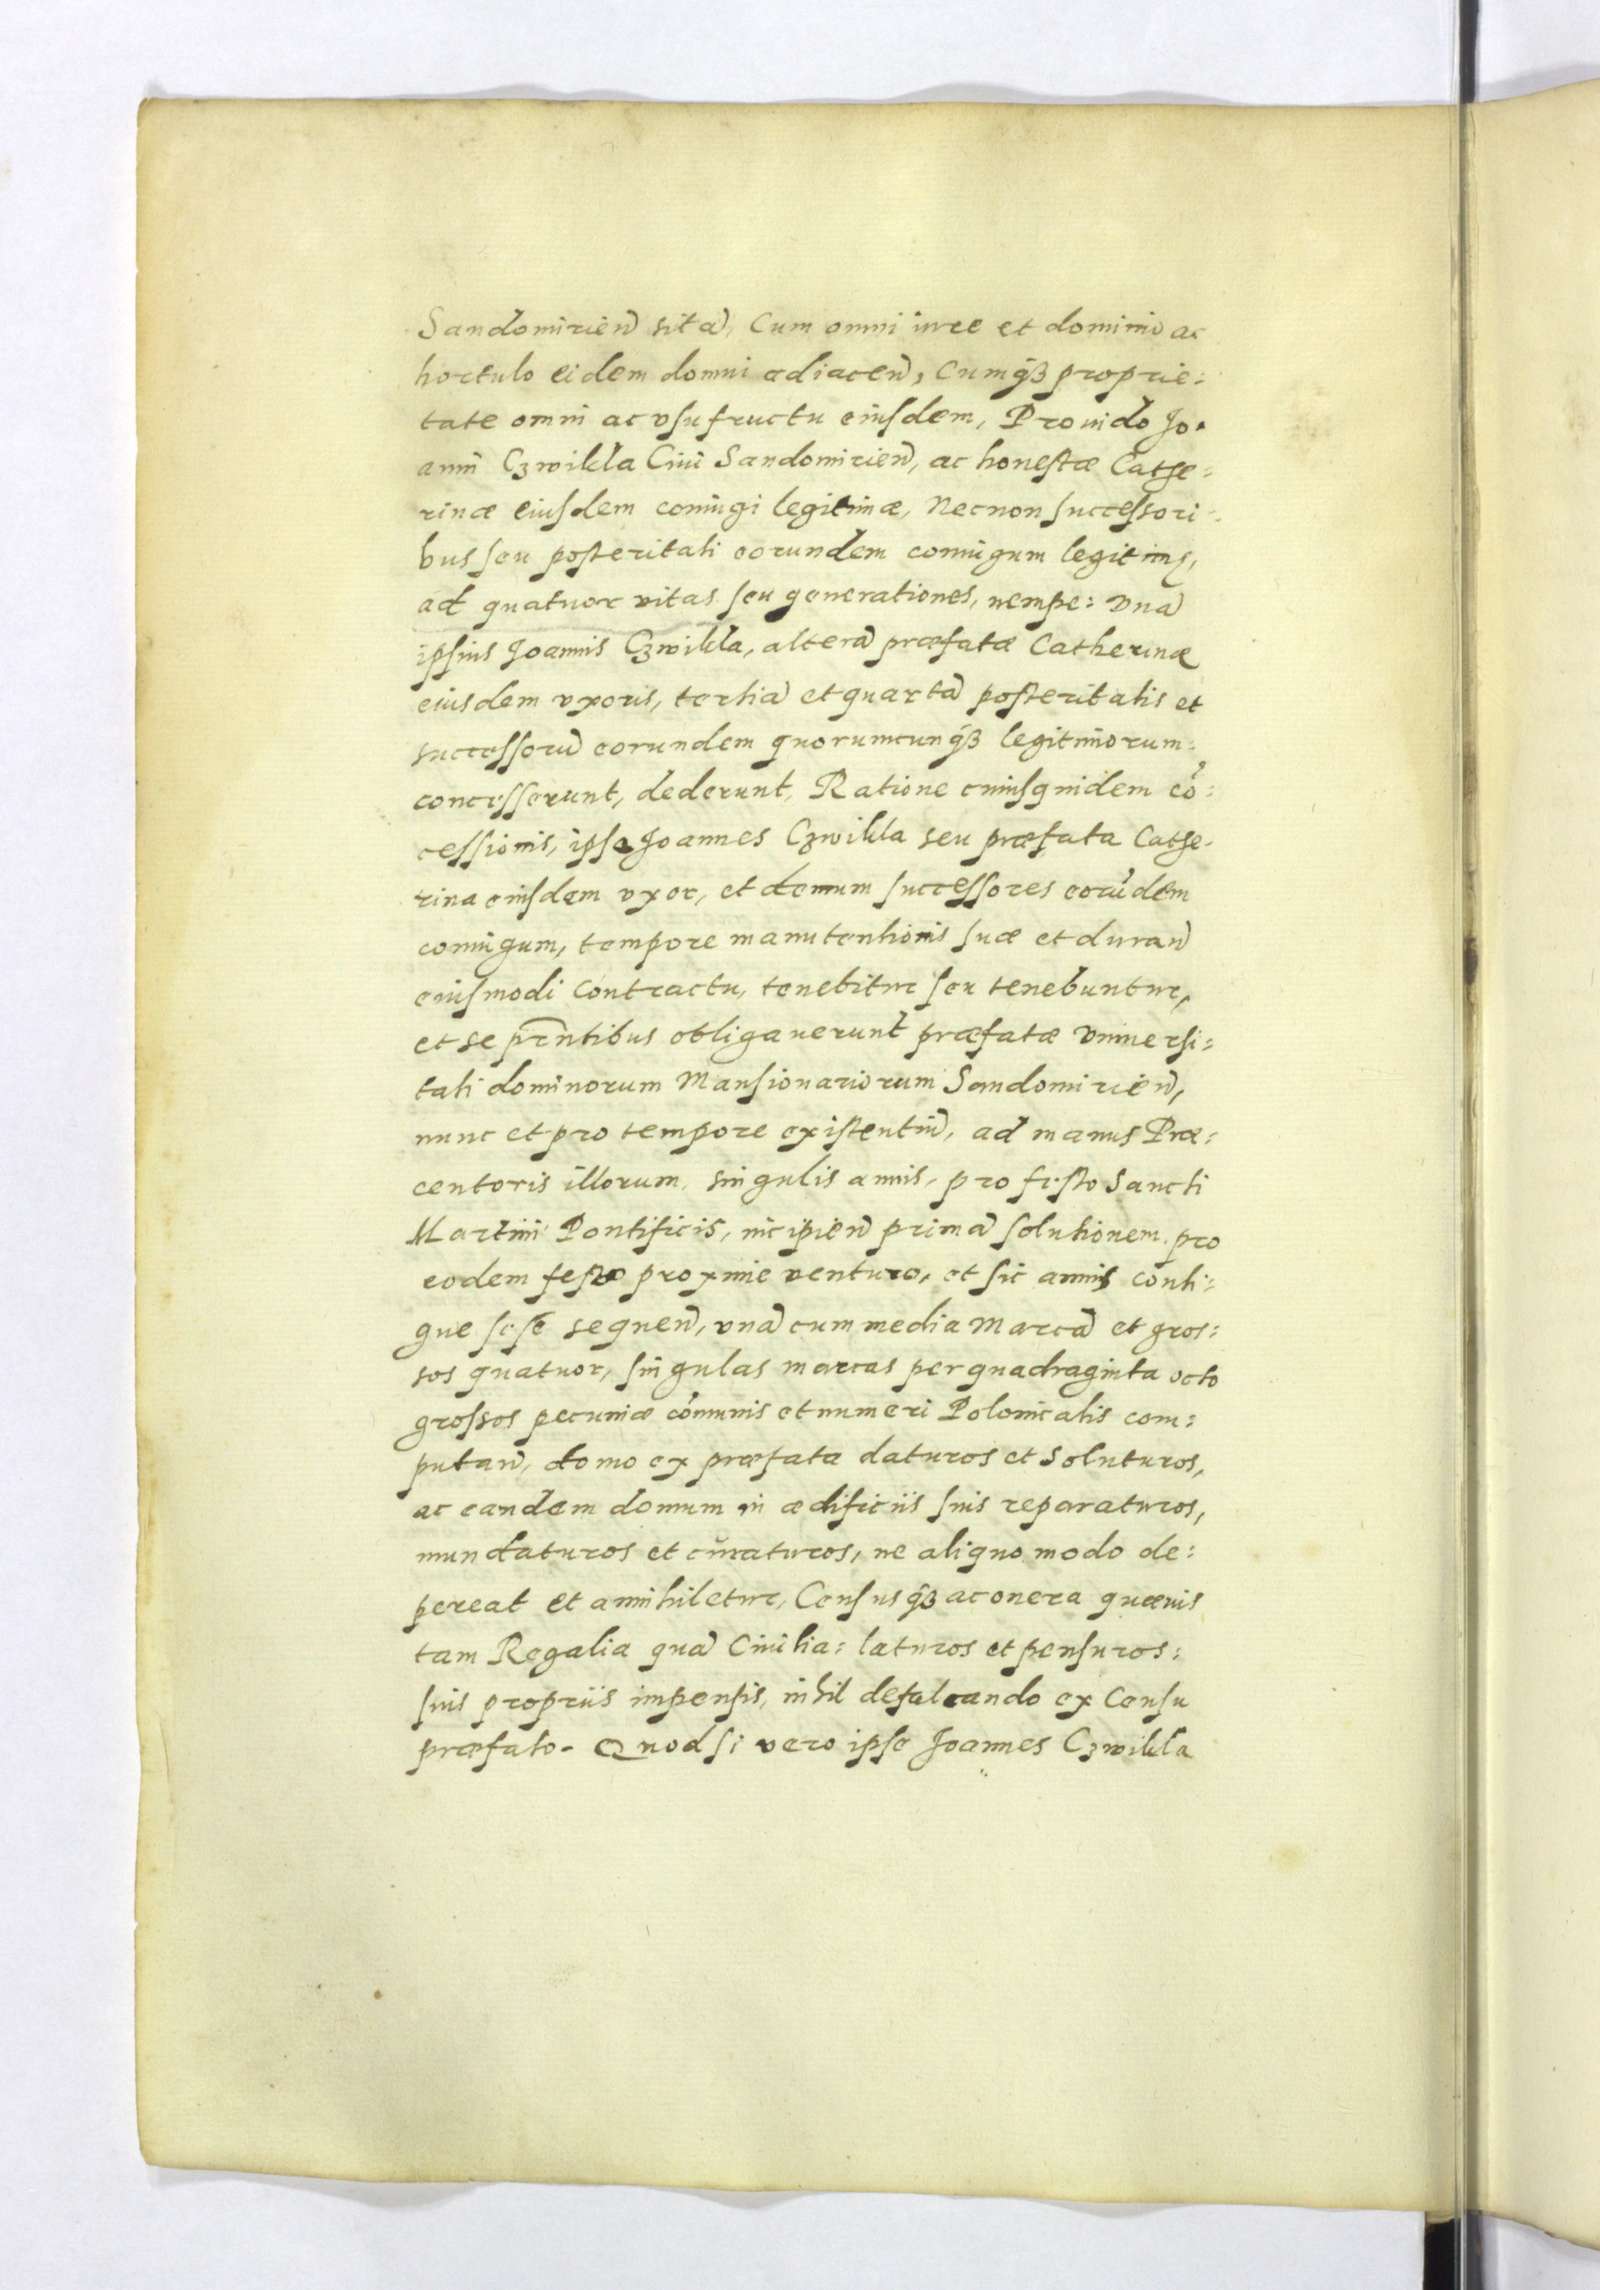 Sandomirien̄ sitā, Cum omni iure et dominio ac
hortulo eidem domui adiacen̄, Cumq₃ proprie:
tate omni ac vsufructu eiusdem, Prouido Jo:
anni Czwikla Ciui Sandomirien̄, ac honestæ Cathe:
rinæ eiusdem coniugi legitimæ, Necnon successori:
bus seu posteritati eorundem coniugum legitimę,
ad quatuor vitas seu generationes, nempe: Vnā
ipsius Joannis Czwikla, alterā præfatæ Catherinæ
eiusdem vxoris, tertiā et quartā posteritatis et
successorū eorundem quorumcunq₃ legitimorum:
concesserunt, dederunt, Ratione cuiusquidem cō:
cessionis, ipse Joannes Czwikla seu præfata Cathe:
rina eiusdem vxor, et demum successores eorūdem
coniugum, tempore manutentionis suæ et duran̄
eiusmodi Contractu, tenebitur seu tenebuntur,
et se pr̄ntibus obligauerunt præfatæ Vniuersi:
tati dominorum Mansionariorum Sandomirien̄,
nunc et pro tempore existentiū, ad manus Præ:
centoris illorum, singulis annis, pro festo Sancti
Martini Pontificis, incipien̄ primā solutionem pro
eodem festo proxime venturo, et sic annis conti:
gue sese sequen̄, vnā cum media Marcā et gros:
sos quatuor, singulas marcas per quadraginta octo
grossos pecuniæ cōmunis et numeri Polonicalis com:
putan̄, domo ex præfata daturos et soluturos,
ac eandem domum in ædificiis suis reparaturos,
mundaturos et curaturos, ne aliquo modo de:
pereat et annihiletur, Censusq₃ ac onera quæuis
tam Regalia quā Ciuilia: laturos et pensuros:
suis propriis impensis, nihil defalcando ex Censu
præfato. Quod si vero ipse Joannes Czwikla